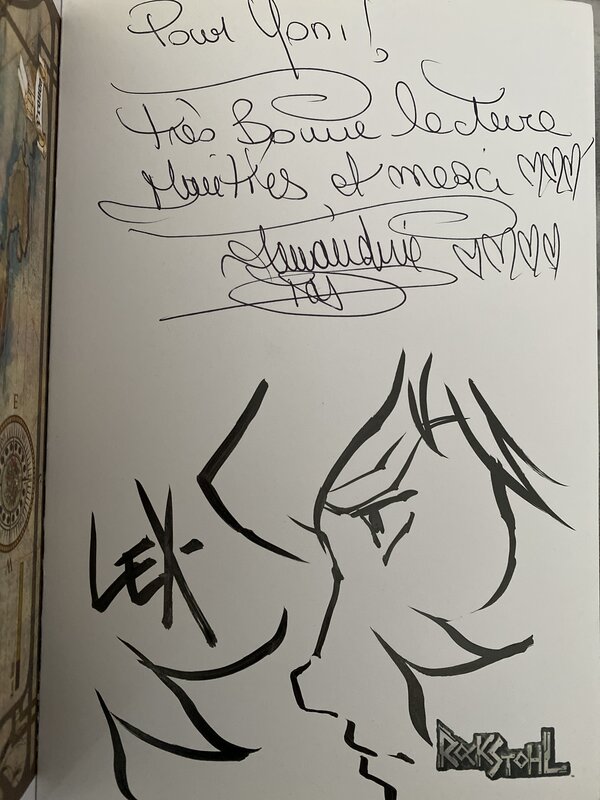 Pour Yoni!,
Très Bonne lecture
et merci
Amandine
LEX
ROCKSTOHL
E